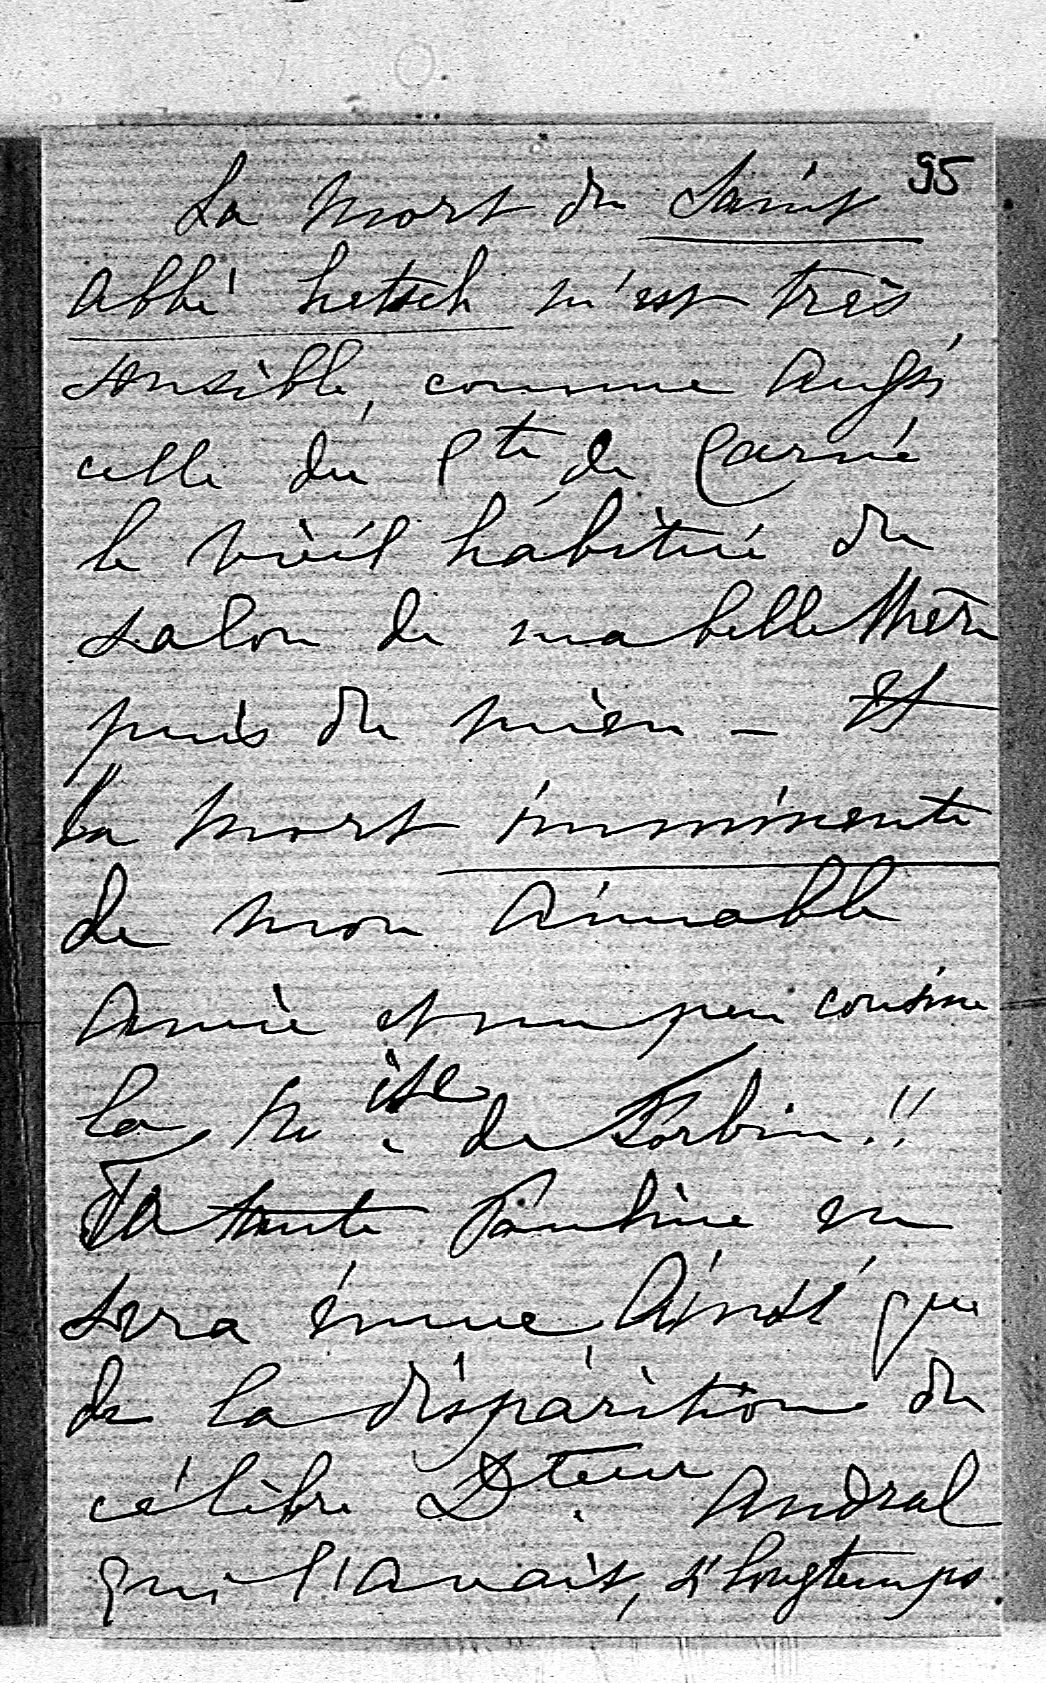 95
La mort du Saint
abbé hetsch m'est très
sensible, comme aussi
celle du Cte de Carné
le vieil habitué du
salon de ma belle Mère
puis du mien – Et
la mort imminente
de mon aimable
amie et un peu cousine
la Mise de Forbin!!
Ta tante Pauline en
sera émue Ainsi que
de la disparition du
célèbre Dteur Andral
qui l'avait, si longtemps